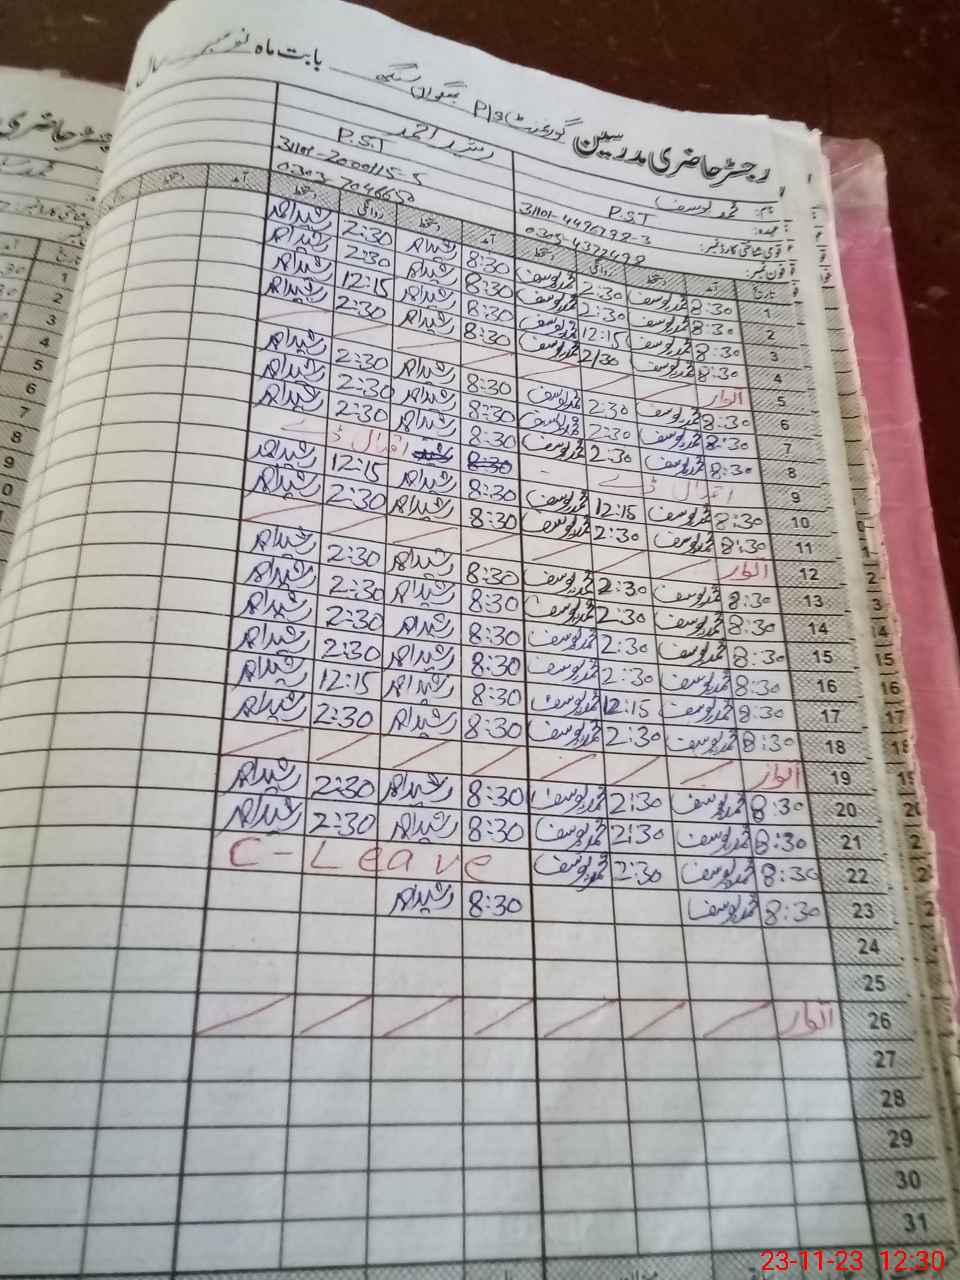 رجسٹر حاضری مدرسین گورنمنٹ P/S بھگوان سنگھ بابت ماہ نومبر سال
نام: محمد یوسف رشید احمد
عہدہ: P.S.T P.S.T
قومی شناختی کارڈ نمبر: 31101-2000115-5
فون نمبر:
تاریخ آمد دستخط روانگی دستخط آمد دستخط روانگی دستخط آمد دستخط
1 8:30 محمد یوسف 2:30 محمد یوسف 8:30 رشید احمد 2:30 رشید احمد
2 8:30 محمد یوسف 2:30 محمد یوسف 8:30 رشید احمد 2:30 رشید احمد
3 8:30 محمد یوسف 12:15 محمد یوسف 8:30 رشید احمد 12:15 رشید احمد
4 8:30 محمد یوسف 2:30 محمد یوسف 8:30 رشید احمد 2:30 رشید احمد
5 اتوار
6 8:30 محمد یوسف 2:30 محمد یوسف 8:30 رشید احمد 2:30 رشید احمد
7 8:30 محمد یوسف 2:30 محمد یوسف 8:30 رشید احمد 2:30 رشید احمد
8 8:30 محمد یوسف 2:30 محمد یوسف 8:30 رشید احمد 2:30 رشید احمد
9 اقبال ڈے 8:30 اقبال ڈے
10 8:30 محمد یوسف 12:15 محمد یوسف 8:30 رشید احمد 12:15 رشید احمد
11 8:30 محمد یوسف 2:30 محمد یوسف 8:30 رشید احمد 2:30 رشید احمد
12 اتوار
13 8:30 محمد یوسف 2:30 محمد یوسف 8:30 رشید احمد 2:30 رشید احمد
14 8:30 محمد یوسف 2:30 محمد یوسف 8:30 رشید احمد 2:30 رشید احمد
15 8:30 محمد یوسف 2:30 محمد یوسف 8:30 رشید احمد 2:30 رشید احمد
16 8:30 محمد یوسف 2:30 محمد یوسف 8:30 رشید احمد 2:30 رشید احمد
17 8:30 محمد یوسف 12:15 محمد یوسف 8:30 رشید احمد 12:15 رشید احمد
18 8:30 محمد یوسف 2:30 محمد یوسف 8:30 رشید احمد 2:30 رشید احمد
19 اتوار
20 8:30 محمد یوسف 2:30 محمد یوسف 8:30 رشید احمد 2:30 رشید احمد
21 8:30 محمد یوسف 2:30 محمد یوسف 8:30 رشید احمد 2:30 رشید احمد
22 8:30 محمد یوسف 2:30 محمد یوسف C-Leave
23 8:30 محمد یوسف 8:30 رشید احمد
24
25
26 اتوار
27
28
29
30
31
23-11-23 12:30